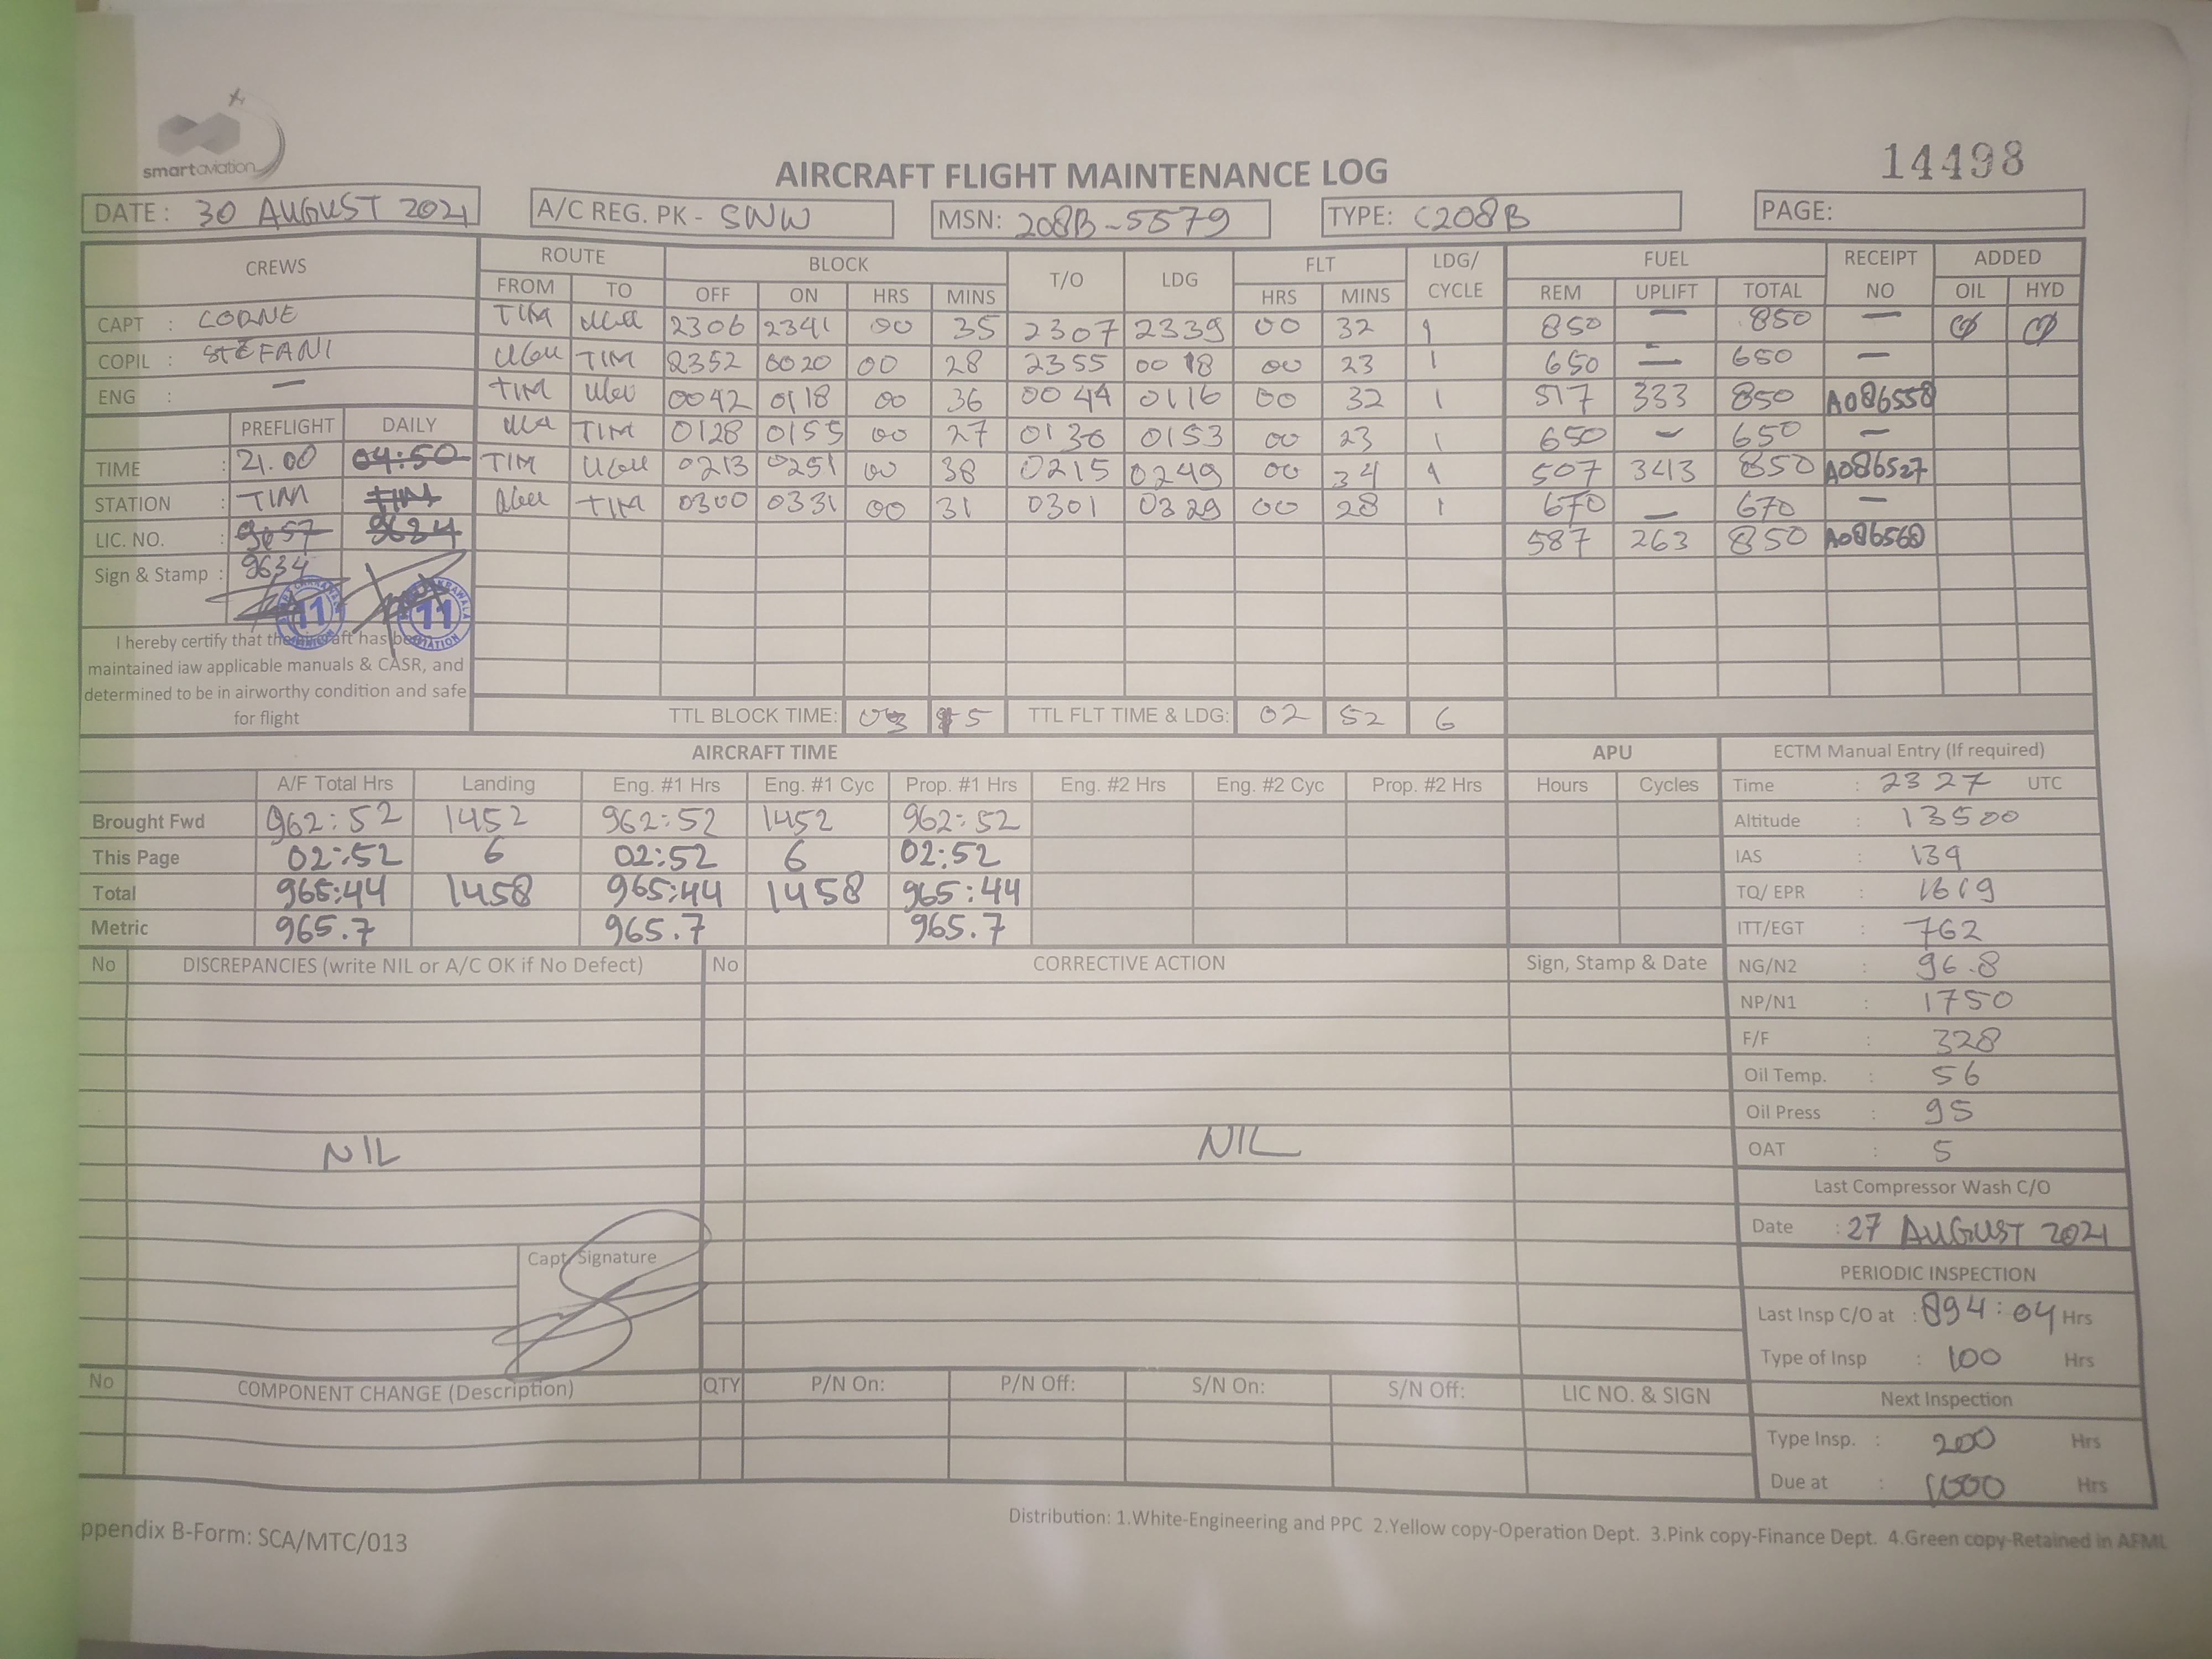 smartaviation
14498
AIRCRAFT FLIGHT MAINTENANCE LOG
DATE : 30 AUGUST 2021 A/C REG. PK - SNW MSN: 208B-5579 TYPE: C208B PAGE:
CREWS ROUTE BLOCK T/O LDG FLT LDG/ CYCLE FUEL RECEIPT NO ADDED
FROM TO OFF ON HRS MINS HRS MINS REM UPLIFT TOTAL OIL HYD
CAPT : CORNE TIM 2306 2341 00 35 2307 2339 00 32 1 850 — 850 — Ø Ø
COPIL : STEFANI TIM 2352 0020 00 28 2355 0018 00 23 1 650 — 650 —
ENG : — TIM 0042 0118 00 36 0044 0116 00 32 1 517 333 850 A086558
PREFLIGHT DAILY TIM 0128 0155 00 27 0130 0153 00 23 1 650 — 650 —
TIME : 21.00 04:50 TIM 0213 0251 00 38 0215 0249 00 34 1 507 343 850 A086527
STATION : TIM TIM TIM 0300 0331 00 31 0301 0329 00 28 1 670 — 670 —
LIC. NO. : 9657 9634 587 263 850 A086560
Sign & Stamp : 9634
11 11
I hereby certify that the aircraft has been
maintained iaw applicable manuals & CASR, and
determined to be in airworthy condition and safe
for flight
TTL BLOCK TIME: 03 15 TTL FLT TIME & LDG: 02 52 6
AIRCRAFT TIME APU ECTM Manual Entry (If required)
A/F Total Hrs Landing Eng. #1 Hrs Eng. #1 Cyc Prop. #1 Hrs Eng. #2 Hrs Eng. #2 Cyc Prop. #2 Hrs Hours Cycles Time : 2327 UTC
Brought Fwd 962:52 1452 962:52 1452 962:52 Altitude : 13500
This Page 02:52 6 02:52 6 02:52 IAS : 139
Total 965:44 1458 965:44 1458 965:44 TQ/ EPR : 1619
Metric 965.7 965.7 965.7 ITT/EGT : 762
No DISCREPANCIES (write NIL or A/C OK if No Defect) No CORRECTIVE ACTION Sign, Stamp & Date NG/N2 : 96.8
NP/N1 : 1750
F/F : 328
Oil Temp. : 56
Oil Press : 95
NIL NIL OAT : 5
Last Compressor Wash C/O
Date : 27 AUGUST 2021
Capt Signature
PERIODIC INSPECTION
Last Insp C/O at : 894:04 Hrs
Type of Insp : 100 Hrs
No COMPONENT CHANGE (Description) QTY P/N On: P/N Off: S/N On: S/N Off: LIC NO. & SIGN Next Inspection
Type Insp. : 200 Hrs
Due at : 1000 Hrs
ppendix B-Form: SCA/MTC/013
Distribution: 1.White-Engineering and PPC 2.Yellow copy-Operation Dept. 3.Pink copy-Finance Dept. 4.Green copy-Retained in AFML